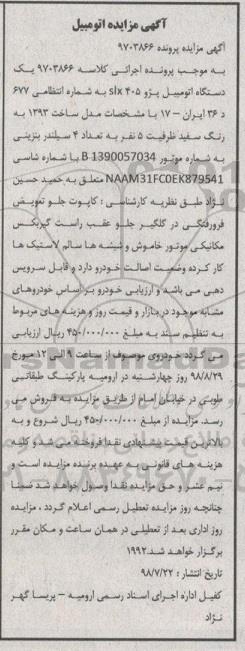 آگهی مزایده اتومبیل
آگهی مزایده پرونده ۹۷۰۳۸۶۶
به موجب پرونده اجرائی کلاسه ۹۷۰۳۸۶۶ یک
دستگاه اتومبیل پژو ۴۰۵ slx به شماره انتظامی ۶۷۷
د ۳۶ ایران – ۱۷ با مشخصات مدل ساخت ۱۳۹۳ به
رنگ سفید ظرفیت ۵ نفر به تعداد ۴ سیلندر بنزینی
به شماره موتور B 1390057034 با شماره شاسی
NAAM31FC0EK879541 متعلق به حمید حسین
نژاد طبق نظریه کارشناسی : کاپوت جلو تعویض
فرورفتگی در گلگیر جلو عقب راست گیربکس
مکانیکی موتور خاموش و شیشه ها سالم لاستیک ها
کار کرده وضعیت اصالت خودرو دارد و قابل سرویس
دهی می باشد و ارزیابی خودرو بر اساس خودروهای
مشابه موجود در بازار و قیمت روز و هزینه های مربوط
به تنظیم سند به مبلغ ۴۵۰/۰۰۰/۰۰۰ ریال ارزیابی
می گردد خودروی موصوف از ساعت ۹ الی ۱۲ مورخ
۹۸/۸/۲۹ روز چهارشنبه در ارومیه پارکینگ طبقاتی
طوبی در خیابان امام از طریق مزایده به فروش می
رسد. مزایده از مبلغ ۴۵۰/۰۰۰/۰۰۰ ریال شروع و به
بالاترین قیمت پیشنهادی نقدا فروخته می شد و کلیه
هزینه های قانونی به عهده برنده مزایده است و
نیم عشر و حق مزایده نقدا وصول خواهد شد ضمنا
چنانچه روز مزایده تعطیل رسمی اعلام گردد ، مزایده
روز اداری بعد از تعطیلی در همان ساعت و مکان مقرر
برگزار خواهد شد.۱۹۹۲
تاریخ انتشار : ۹۸/۷/۲۲
کفیل اداره اجرای اسناد رسمی ارومیه – پریسا گهر
نژاد